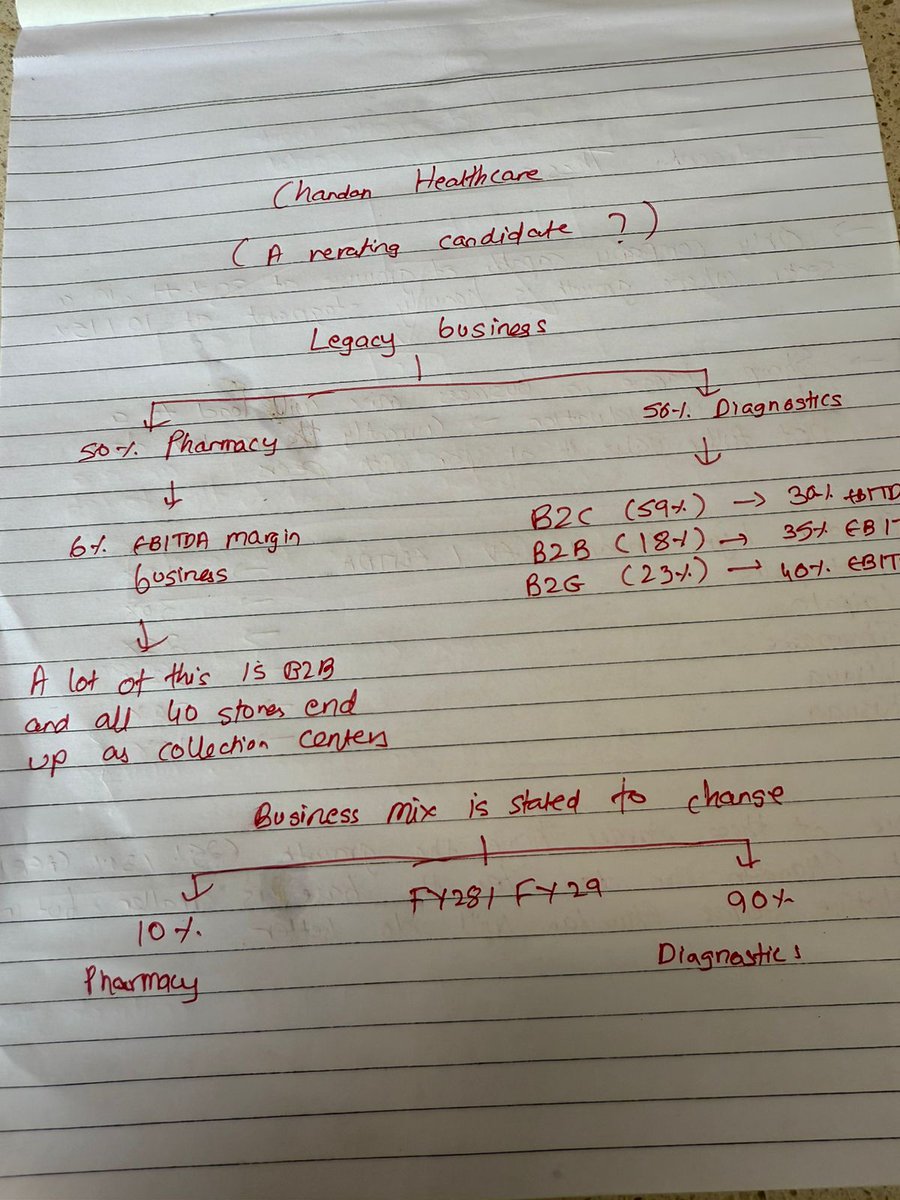 Chandan Healthcare
( A rerating candidate ? )
Legacy business
50% Pharmacy
6% EBITDA margin
business
A lot of this is B2B
and all 40 stores end
up as collection centers
50% Diagnostics
B2C (59%) → 30% EBITD
B2B (18%) → 35% EBIT
B2G (23%) → 40% EBIT
Business mix is stated to change
FY28/ FY29
10%
Pharmacy
90%
Diagnostics